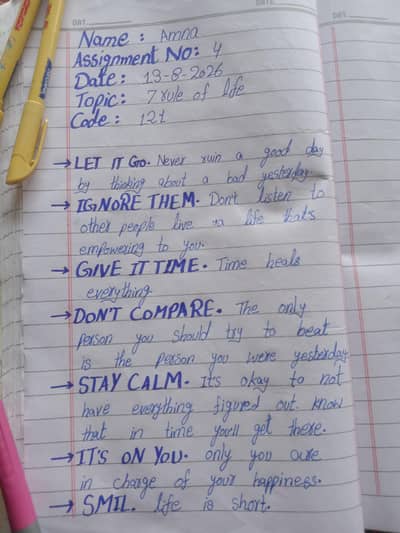 DATE
Name : Amna
Assignment No: 4
Date : 13-8-2026
Topic: 7 rule of life
Code : 121
→ LET IT GO. Never ruin a good day
by thinking about a bad yesterday.
→ IGNORE THEM. Don't listen to
other people live a life that's
empowering to you.
→ GIVE IT TIME. Time heals
everything.
→ DON'T COMPARE. The only
person you should try to beat
is the person you were yesterday
→ STAY CALM. It's okay to not
have everything figured out. know
that in time you'll get there.
→ IT'S ON YOU. only you are
in charge of your happiness.
→ SMIL. life is short.
DAY
DATE
DAY